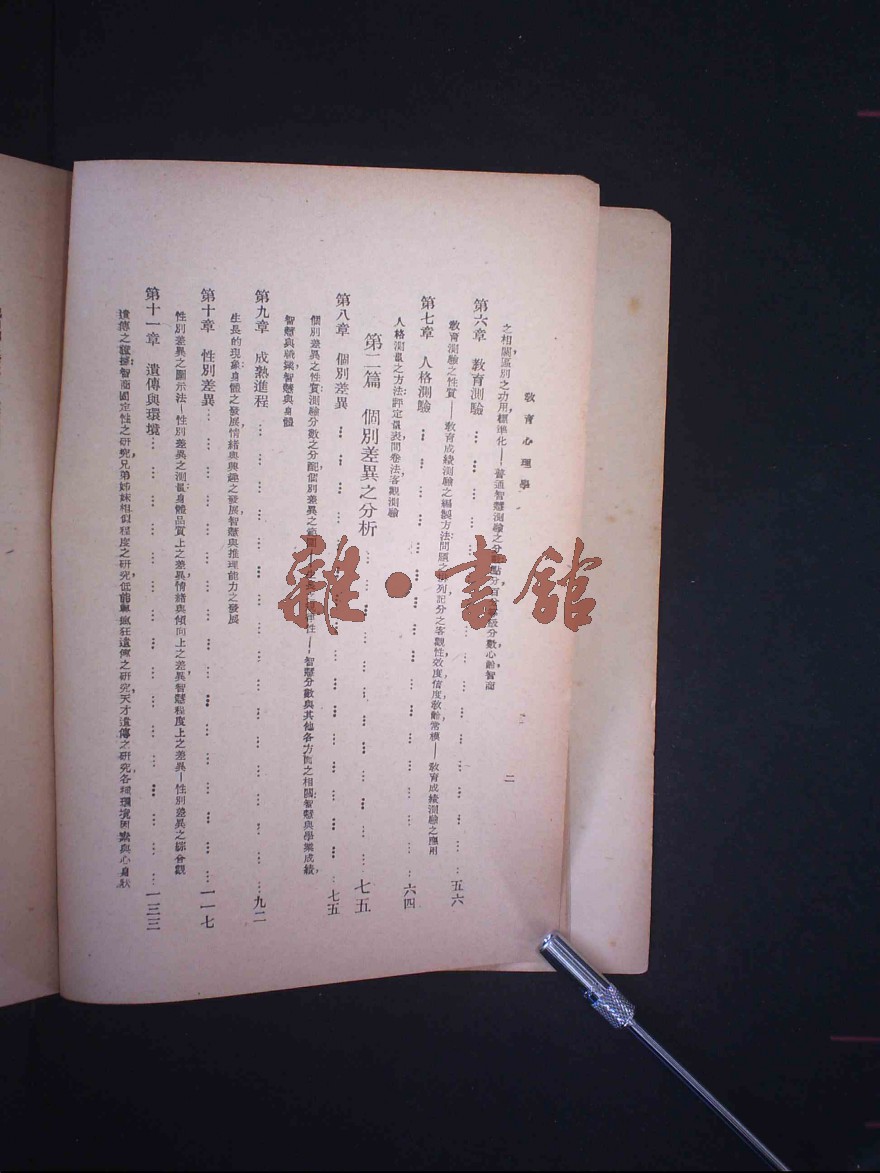 教育心理學
二
之相關,區別之功用,標準化——普通智慧測驗之分數點分百分等級分數心齡智商
第六章 教育測驗 五六
教育測驗之性質——教育成績測驗之編製方法問題之排列記分之客觀性效度信度教齡常模——教育成績測驗之應用
第七章 人格測驗 六四
人格測量之方法:評定量表問卷法客觀測驗
第二篇 個別差異之分析 七五
第八章 個別差異 七五
個別差異之性質:測驗分數之分配,個別差異之範圍——性——智慧分數與其他各方面之相關:智慧與學業成績,
智慧與職業智慧與身體
第九章 成熟進程 九二
生長的現象:身體之發展,情緒與興趣之發展,智慧與推理能力之發展
第十章 性別差異 一一七
性別差異之顯示法—性別差異之測量:身體品質上之差異,情緒與傾向上之差異,智慧程度上之差異—性別差異之綜合觀
第十一章 遺傳與環境 一三三
遺傳之證據:智商固定性之研究,兄弟姊妹相似程度之研究,低能與瘋狂遺傳之研究,天才遺傳之研究,各種環境因素與心身狀
雜·書館